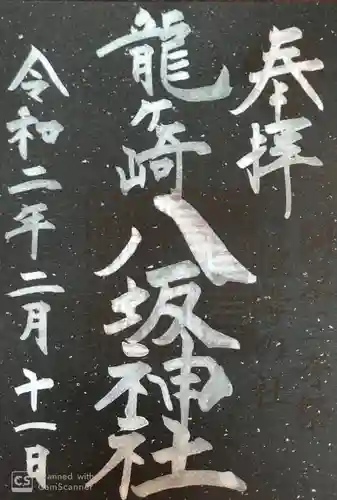 奉拝
龍ヶ崎八坂神社
令和二年二月十一日
CS
Scanned with
CamScanner